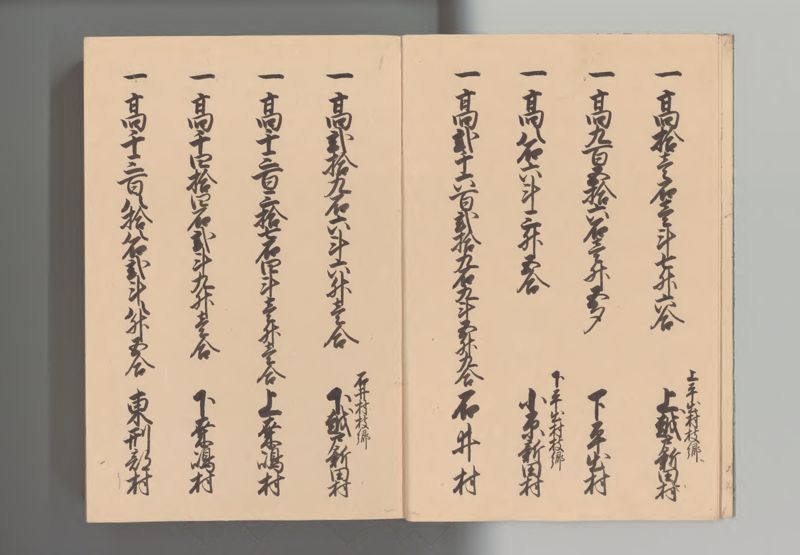 一高拾壱石壱斗七升六合
上平出村枝郷
上越新田村
一高九百五拾六石壱升五夕
下平出村
一高八石六斗二升五合
下平出村枝郷
新田村
一高弐千六百弐拾九石九斗五升九合
石井村
一高弐拾九石六斗六升壱合
石井村枝郷
下越新田村
一高千三百三拾七石四斗壱升壱合
上乗嶋村
一高千四拾四石弐斗九升壱合
下乗嶋村
一高千三百八拾八石弐斗八升五合
東刑部村